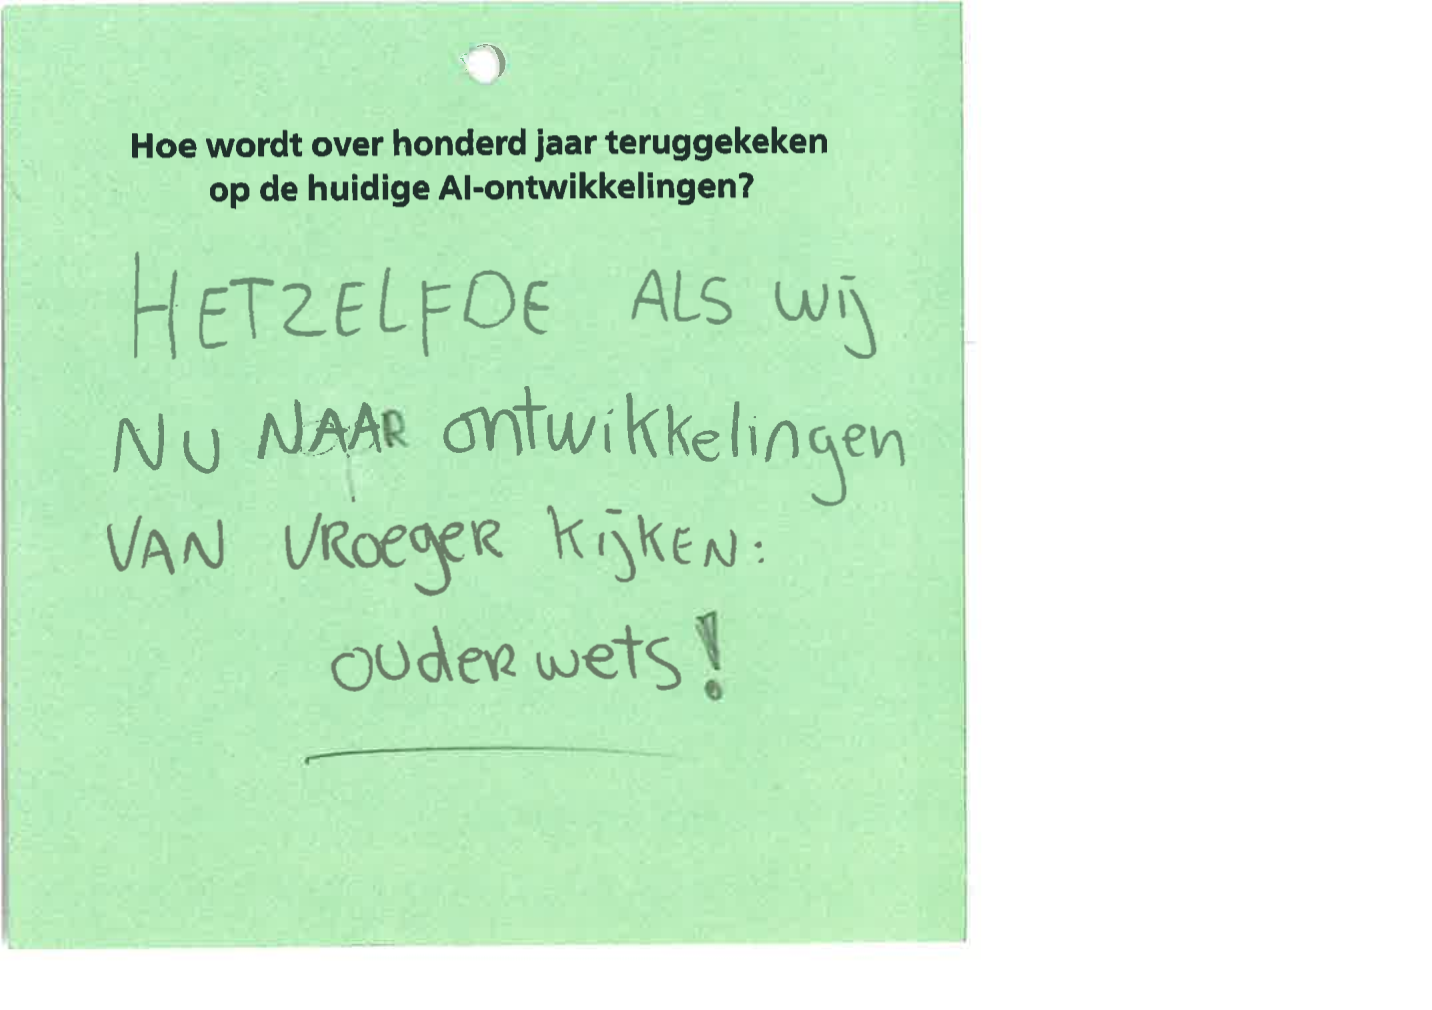 Hoe wordt over honderd jaar teruggekeken
op de huidige AI-ontwikkelingen?
HETZELFDE ALS wij
NU NAAR ontwikkelingen
VAN VRoegeR KijKEN:
ouderwets!